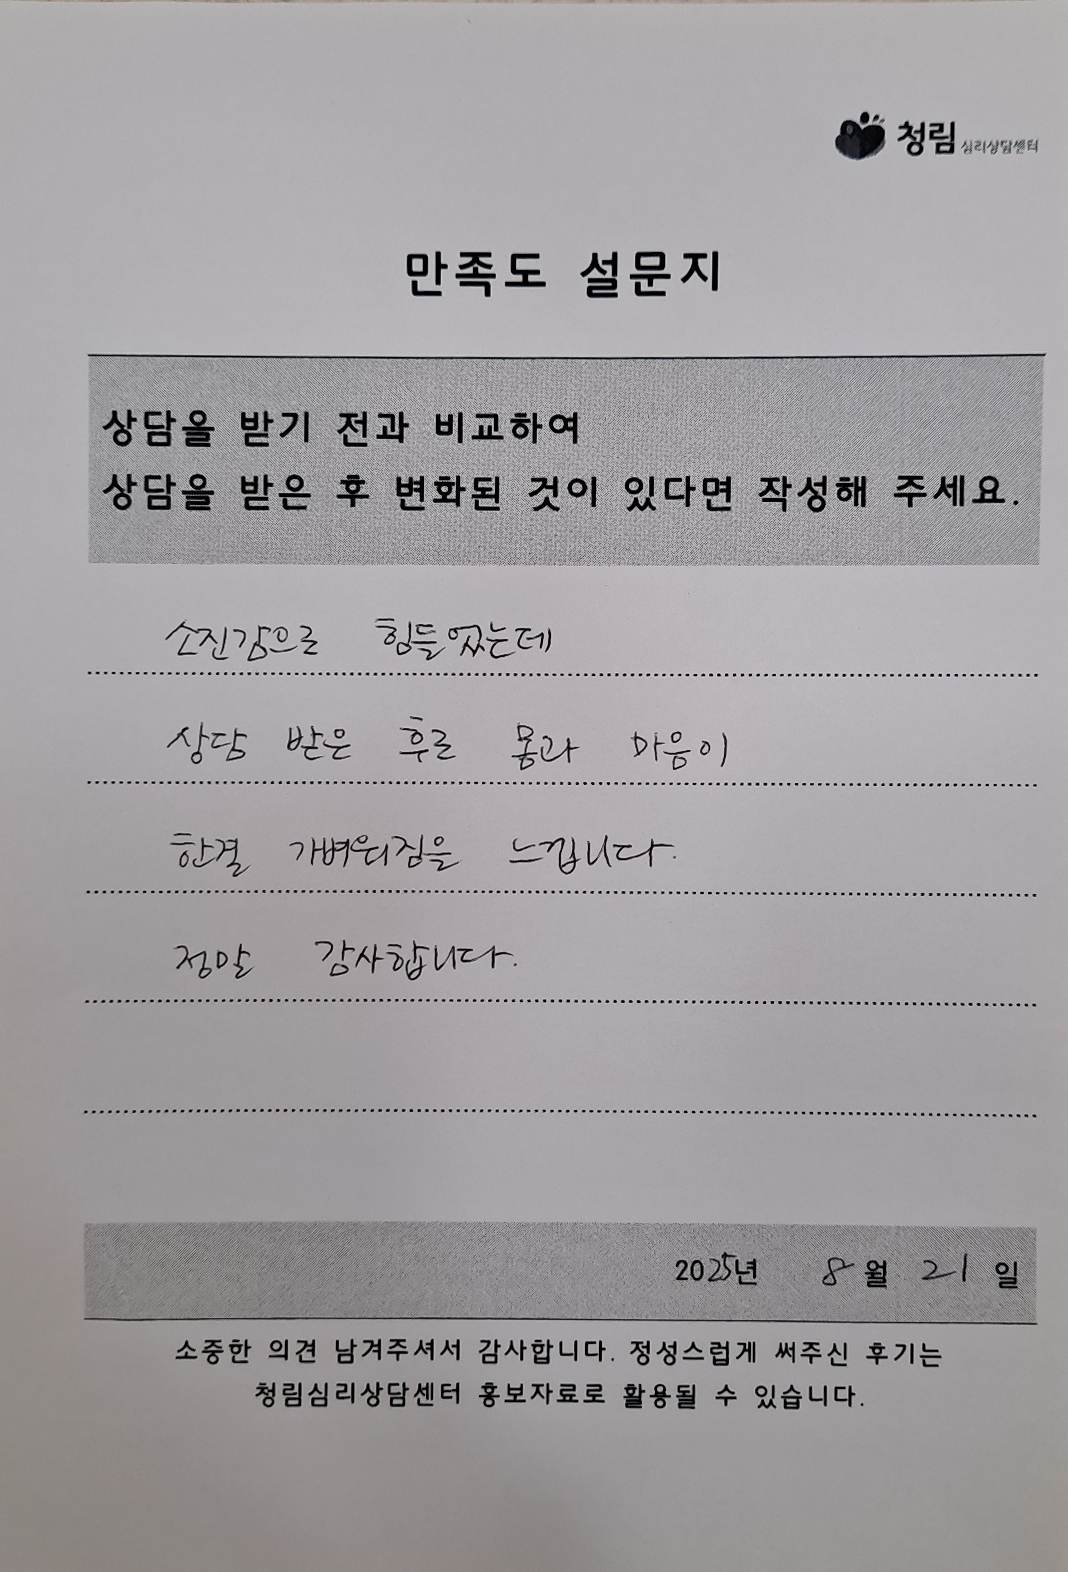 청림 심리상담센터
만족도 설문지
상담을 받기 전과 비교하여
상담을 받은 후 변화된 것이 있다면 작성해 주세요.
소진감으로 힘들었는데
상담 받은 후로 몸과 마음이
한결 가벼워짐을 느낍니다.
정말 감사합니다.
2025년 8월 21일
소중한 의견 남겨주셔서 감사합니다. 정성스럽게 써주신 후기는
청림심리상담센터 홍보자료로 활용될 수 있습니다.